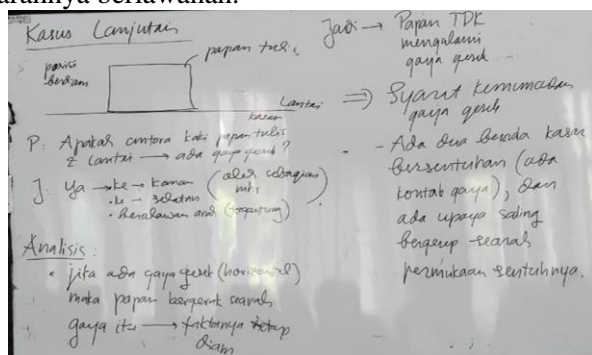 arahnya berlawanan.
Kasus Lanjutan
papan tulis
posisi
berdiam
Lantai
kasar
P: Apakah antara kaki papan tulis
& lantai → ada gaya gesek?
J: Ya → ke → kanan (oleh sebagian
mhs)
• ke → selatan
• berlawanan arah (tergantung)
Analisis:
• jika ada gaya gesek (horizontal)
maka papan bergerak searah
gaya itu → faktanya tetap
diam
Jadi → Papan TDK
mengalami
gaya gesek
⇒ Syarat kemunculan
gaya gesek
- Ada dua benda kasar
bersentuhan (ada
kontak gaya), dan
ada upaya saling
bergerak searah
permukaan sentuhnya.